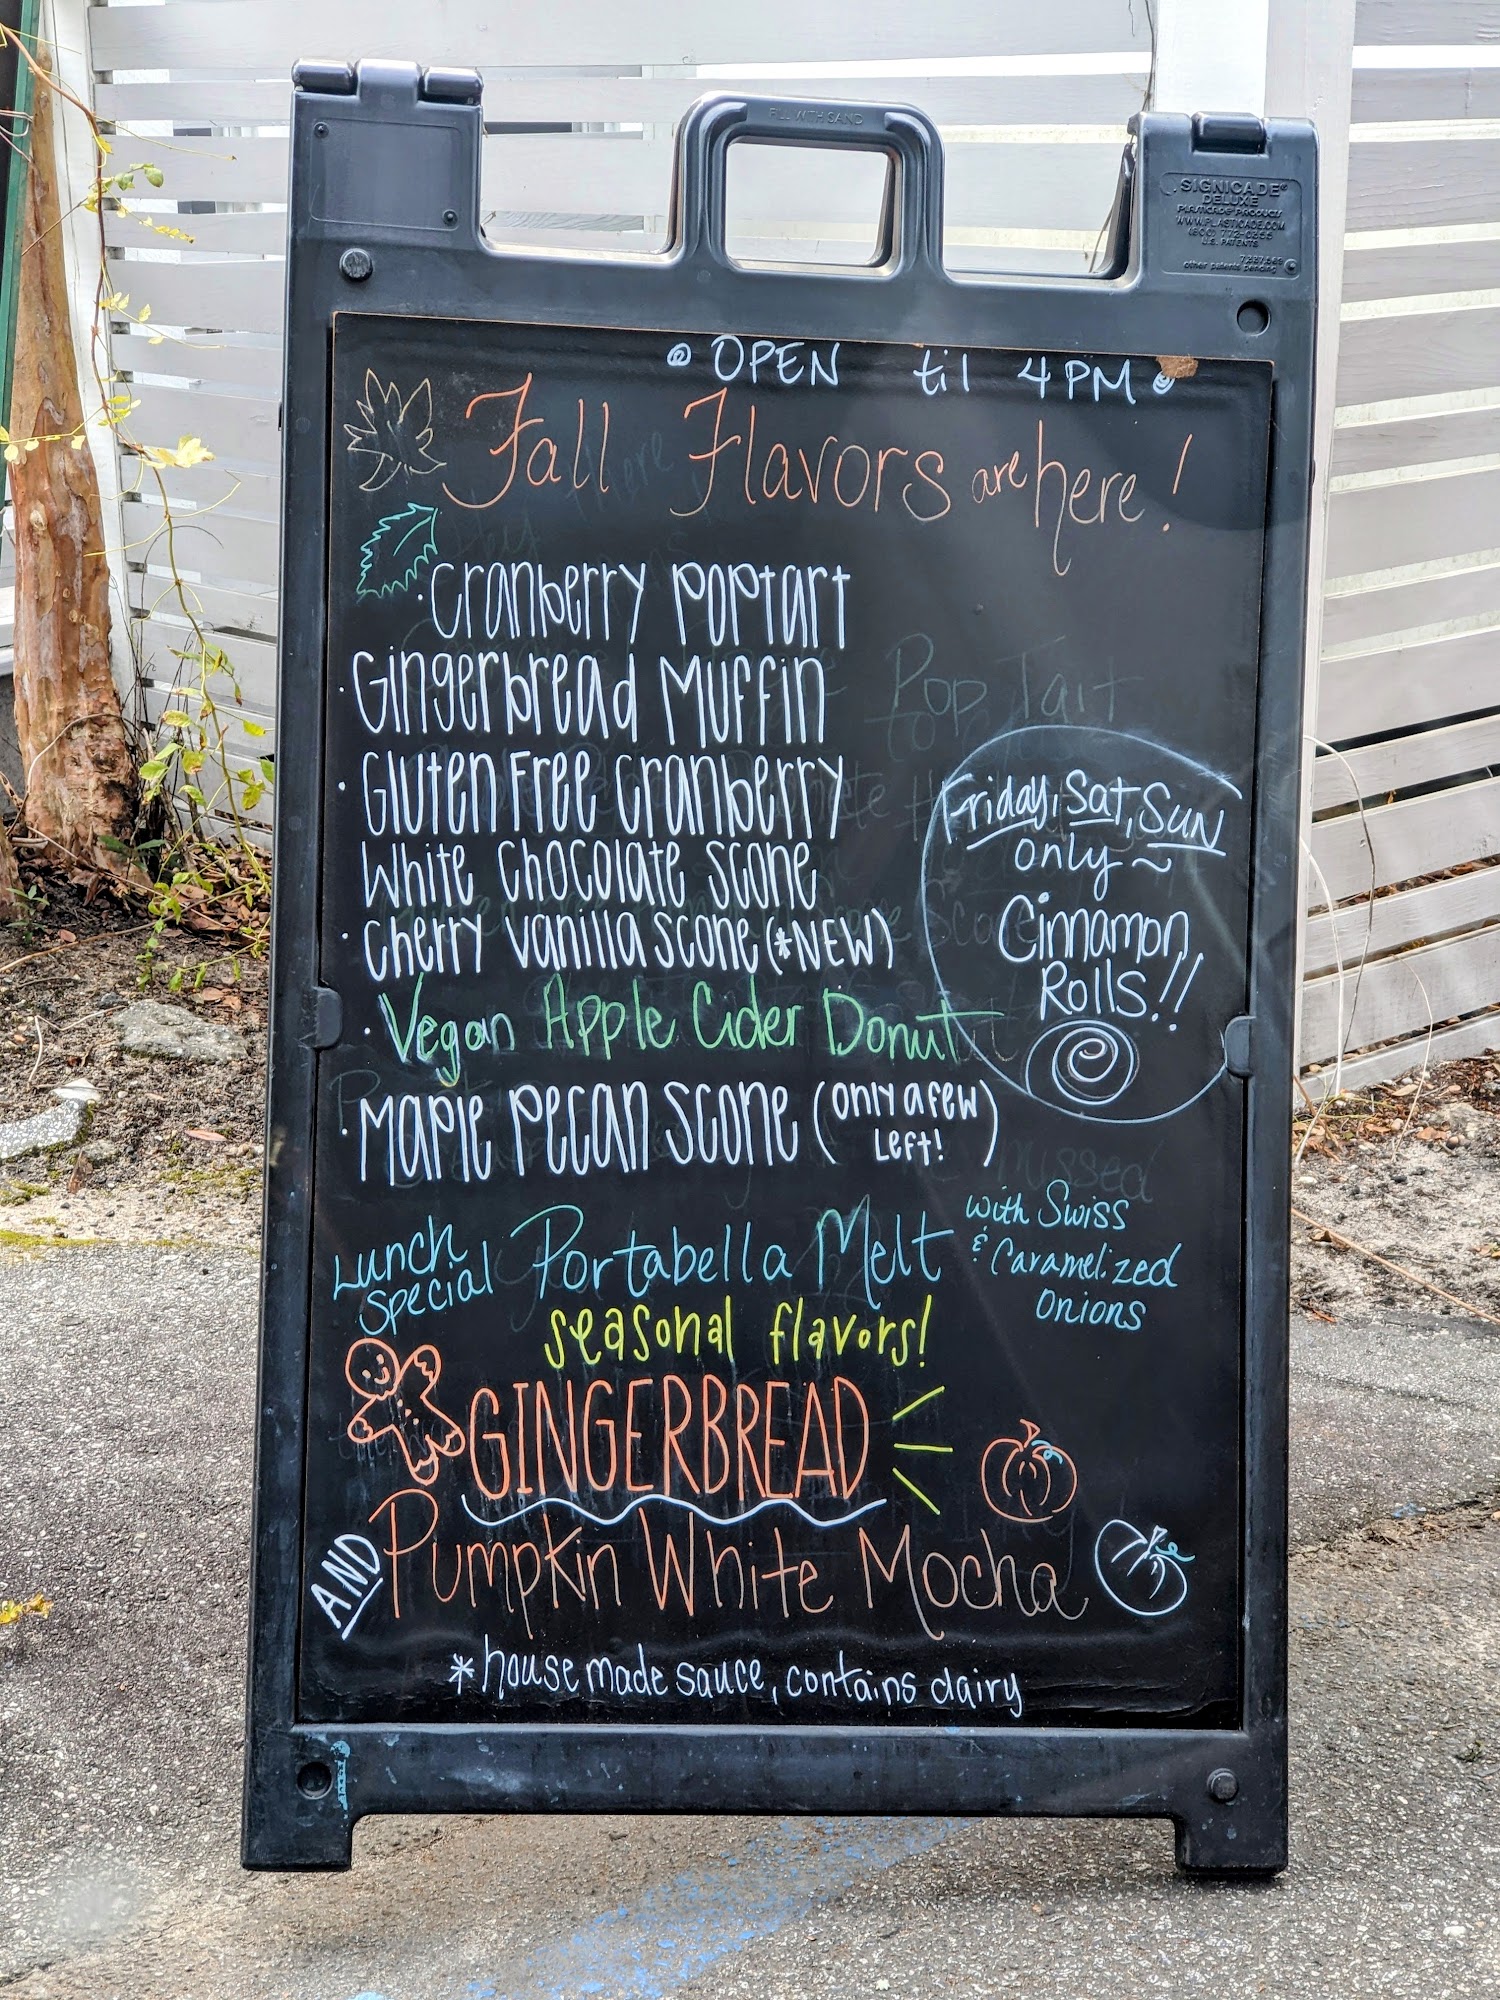 FILL WITH SAND
SIGNICADE®
DELUXE
PLASTICADE PRODUCTS
WWW.PLASTICADE.COM
(800) 772-0355
U.S. PATENTS
other patents pending
OPEN til 4PM
Fall Flavors are here!
· Cranberry Poptart
· Gingerbread Muffin
· Gluten Free Cranberry
White Chocolate Scone
· Cherry Vanilla Scone (*NEW)
· Vegan Apple Cider Donut
· Maple Pecan Scone (only a few
left!)
Friday, Sat, Sun
only ~
Cinnamon
Rolls!!
Lunch
Special
Portabella Melt
with Swiss
& Caramelized
onions
seasonal flavors!
GINGERBREAD
AND Pumpkin White Mocha
*house made sauce, contains dairy